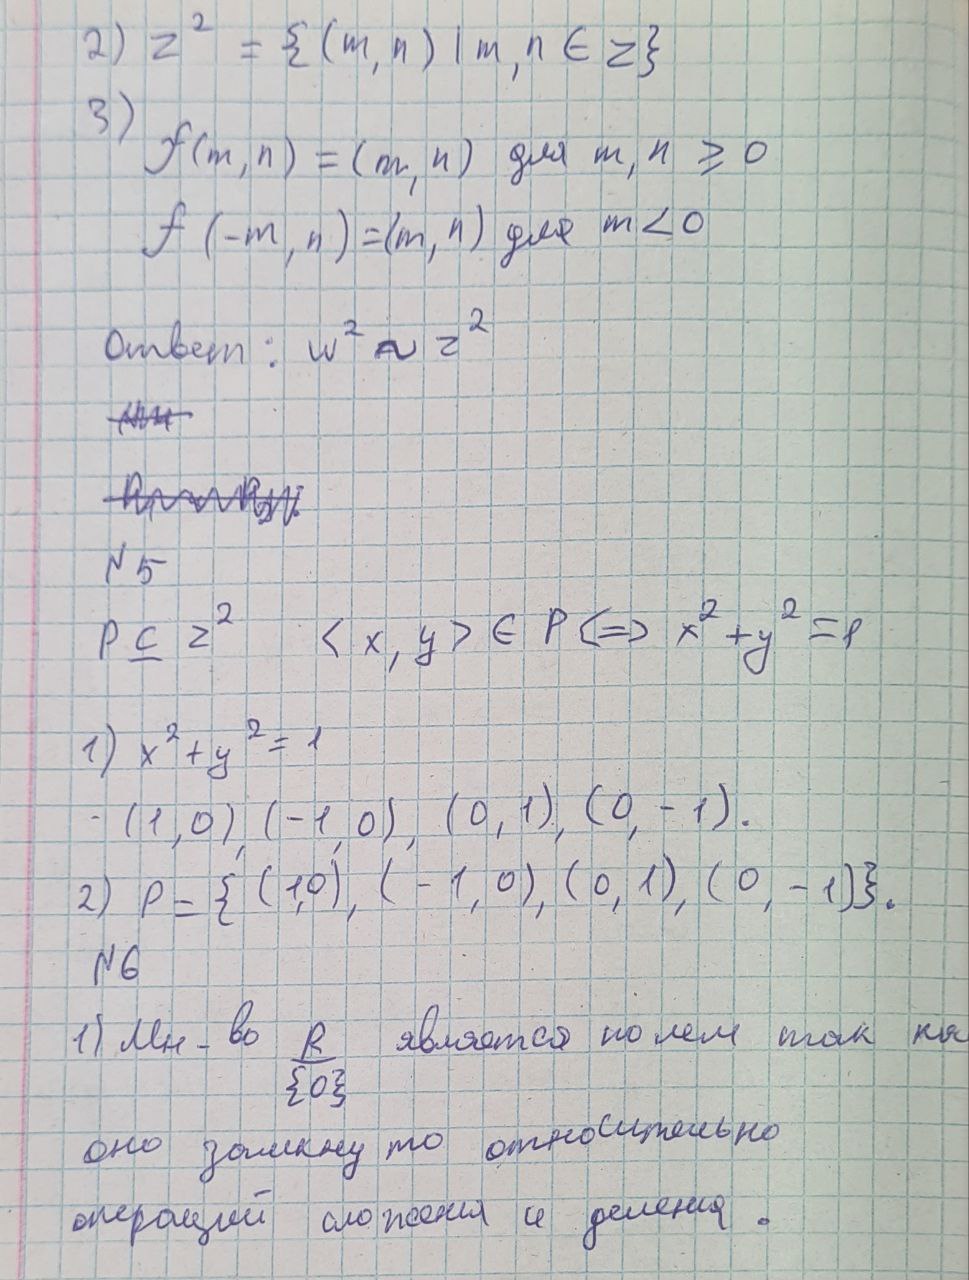 2) Z² = {(m, n) | m, n ∈ Z}
3)
f(m, n) = (m, n) для m, n ≥ 0
f(-m, n) = (m, n) для m < 0
Ответ: w² ~ z²
N5
P ⊆ Z² <x, y> ∈ P <=> x² + y² = 1
1) x² + y² = 1
- (1, 0), (-1, 0), (0, 1), (0, -1).
2) P = {(1,0), (-1, 0), (0, 1), (0, -1)}.
N6
1) Мн-во R/{0} является полем так ка
оно замкнуто относительно
операций сложения и деления.